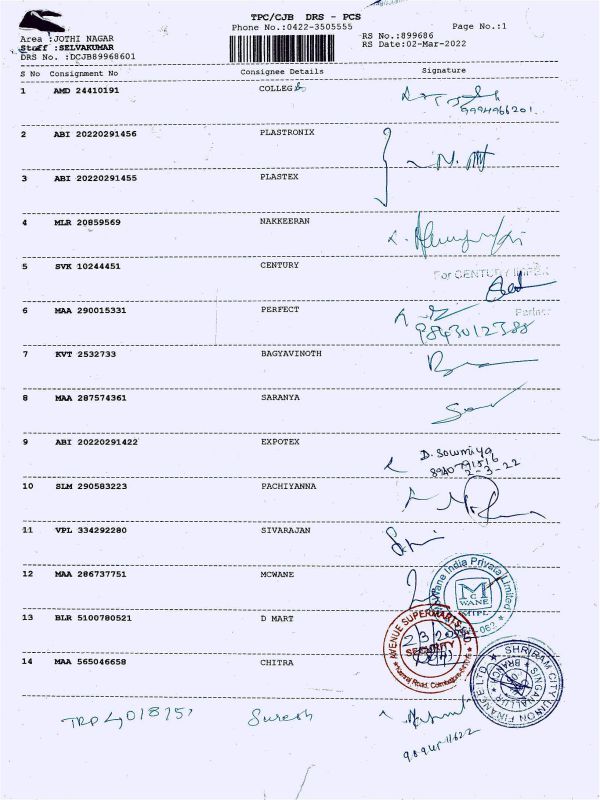 TPC/CJB DRS - PCS
Phone No.:0422-3505555
Page No.:1
Area :JOTHI NAGAR
RS No.:899686
Staff :SELVAKUMAR
RS Date:02-Mar-2022
DRS No. :DCJB89968601
S No Consignment No Consignee Details Signature
1 AMD 24410191 COLLEG
9994966201
2 ABI 20220291456 PLASTRONIX
3 ABI 20220291455 PLASTEX
4 MLR 20859569 NAKKEERAN
5 SVK 10244451 CENTURY
For CENTURY
6 MAA 290015331 PERFECT
Partner
9843012388
7 KVT 2532733 BAGYAVINOTH
8 MAA 287574361 SARANYA
9 ABI 20220291422 EXPOTEX
D. Sowmiya
2-3-22
10 SLM 290583223 PACHIYANNA
11 VPL 334292280 SIVARAJAN
12 MAA 286737751 MCWANE
India Private Limited
WANE
MIPL
13 BLR 5100780521 D MART
AVENUE SUPERMARTS
SECURITY
Kamraj Road, Coimbatore
14 MAA 565046658 CHITRA
SHRIRAM CITY UNION FINANCE LTD
SINGANALLUR BRANCH
Suresh